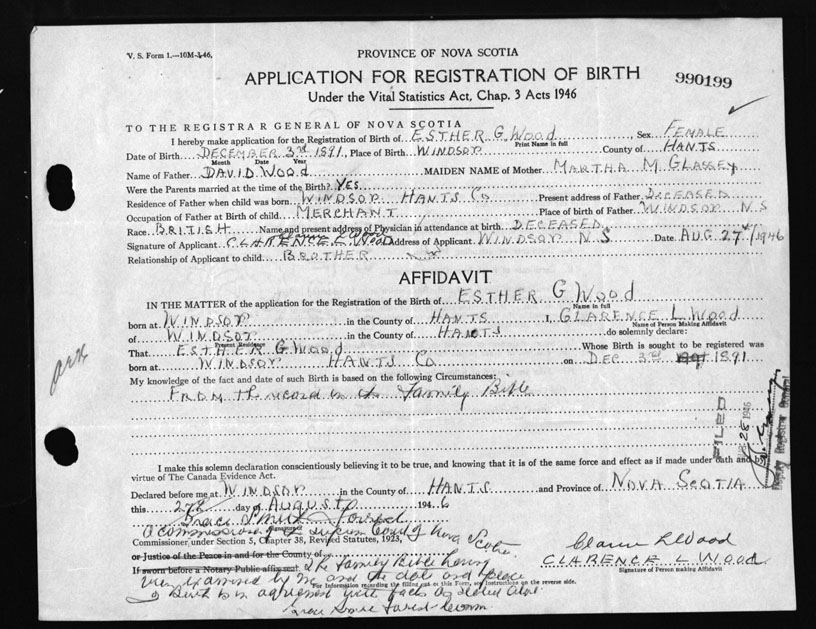 V. S. Form 1.—10M-3-46.
PROVINCE OF NOVA SCOTIA
APPLICATION FOR REGISTRATION OF BIRTH
990199
Under the Vital Statistics Act, Chap. 3 Acts 1946
TO THE REGISTRAR GENERAL OF NOVA SCOTIA
I hereby make application for the Registration of Birth of ESTHER G. Wood, Sex FEMALE
Print Name in full
Date of Birth DECEMBER 3rd 1891, Place of Birth WINDSOR County of HANTS
Month Date Year
Name of Father DAVID WOOD MAIDEN NAME of Mother MARTHA M GLASSEY
Were the Parents married at the time of the Birth? YES
Residence of Father when child was born WINDSOR HANTS Co Present address of Father DECEASED
Occupation of Father at Birth of child MERCHANT Place of birth of Father WINDSOR N S
Race BRITISH Name and present address of Physician in attendance at birth DECEASED
Signature of Applicant CLARENCE L WOOD Address of Applicant WINDSOR N S Date AUG 27th/1946
Relationship of Applicant to child BROTHER
AFFIDAVIT
IN THE MATTER of the application for the Registration of the Birth of ESTHER G Wood
Name in full
born at WINDSOR in the County of HANTS I, CLARENCE L Wood
Name of Person Making Affidavit
of WINDSOR in the County of HANTS do solemnly declare:
Present Residence
That ESTHER G Wood Whose Birth is sought to be registered was
born at WINDSOR HANTS Co on DEC 3rd 1891
My knowledge of the fact and date of such Birth is based on the following Circumstances:
FROM the record in the Family Bible
FILED
28 1946
Deputy Registrar General
I make this solemn declaration conscientiously believing it to be true, and knowing that it is of the same force and effect as if made under oath and by
virtue of The Canada Evidence Act.
Declared before me at WINDSOR in the County of HANTS and Province of NOVA SCOTIA
this 27th day of AUGUST 1946
Signature of
A commissioner of the Supreme Court of Nova Scotia
Commissioner under Section 5, Chapter 38, Revised Statutes, 1923,
or Justice of the Peace in and for the County of
If sworn before a Notary Public affix seal. The family Bible having
Clarence L Wood
CLARENCE L WOOD
Signature of Person making Affidavit
been examined by me and the date and place
For Information regarding the filling out of this Form, see Instructions on the reverse side.
of Birth is in agreement with facts as stated above.